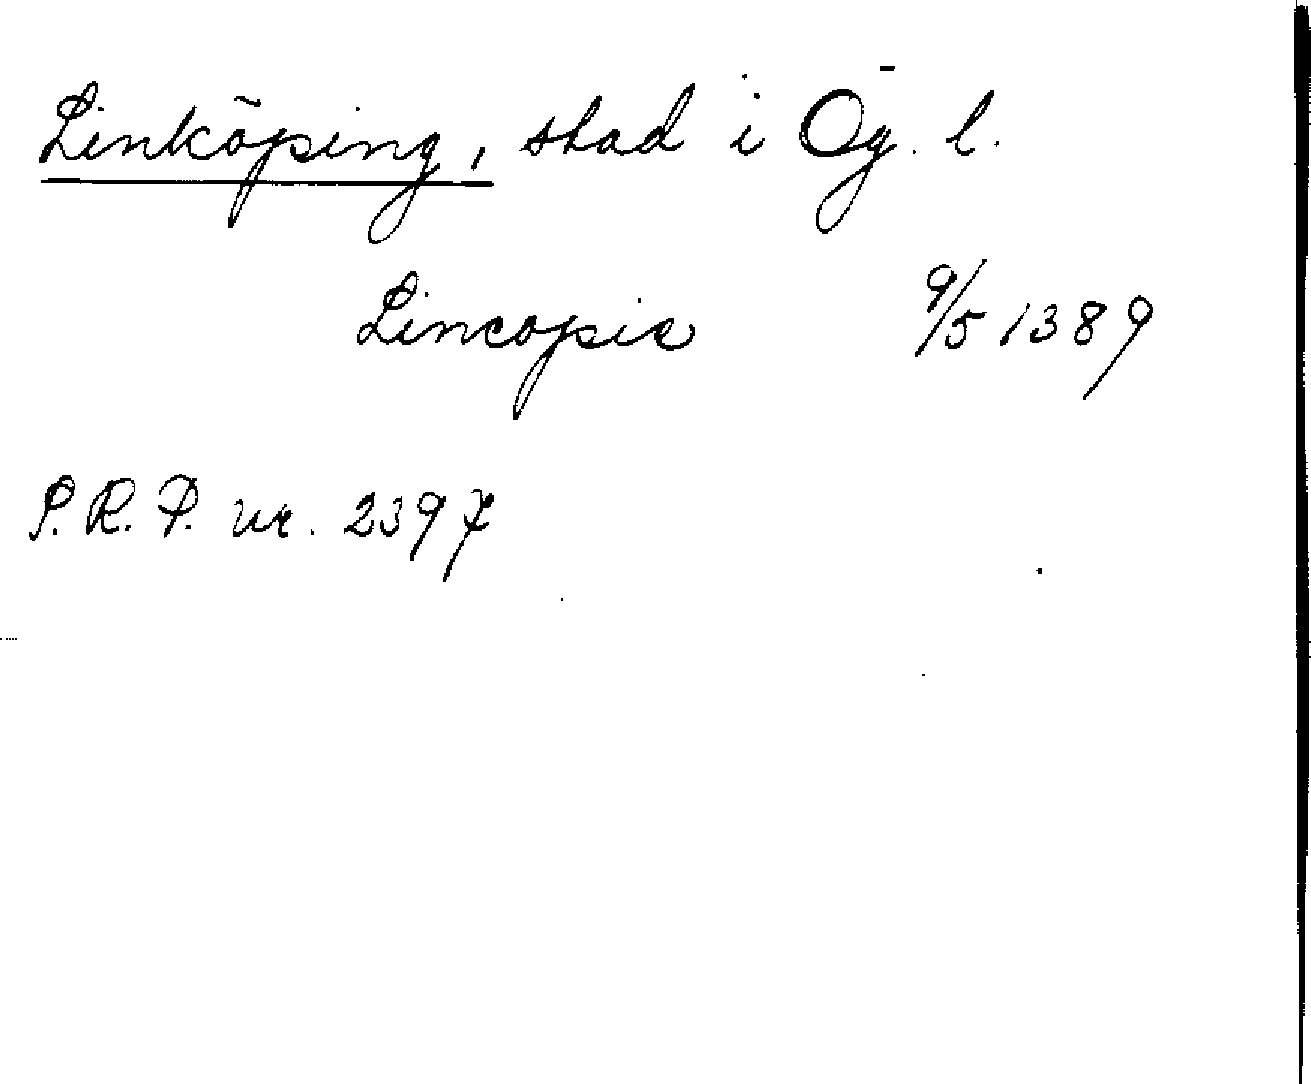 Linköping, stad i Ög. l.
Lincopie 9/5 1389
P.R.P. nr. 2397